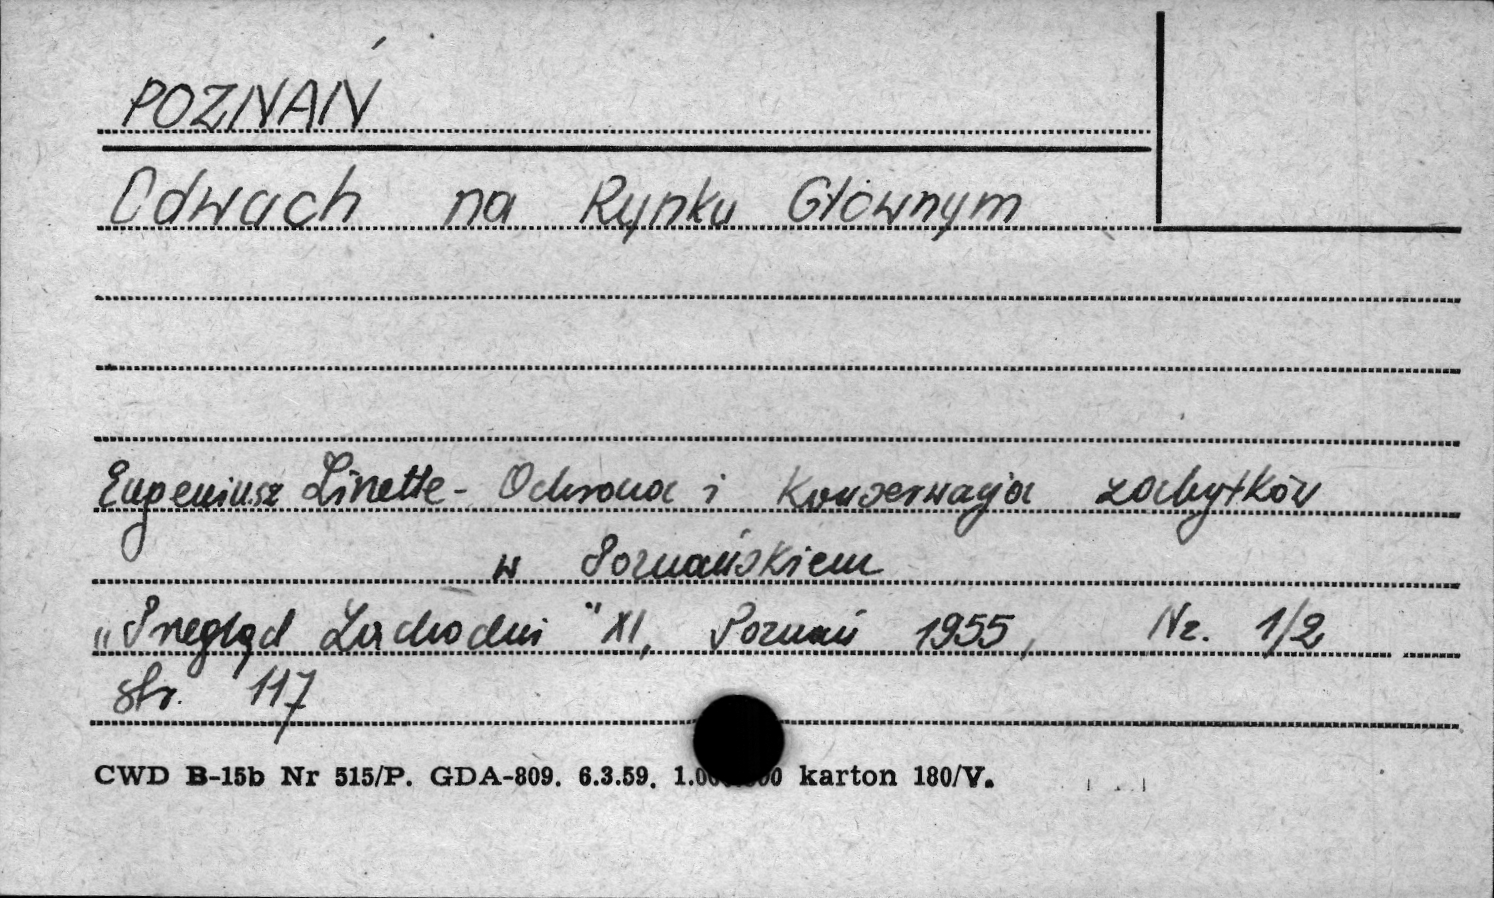 POZNAŃ
Odwach na Rynku Głównym
Eugeniusz Linette - Ochrona i konserwacja zabytków
w Poznańskiem
„Przegląd Zachodni" XI, Poznań 1955, Nr. 1/2
str. 117
CWD B-15b Nr 515/P. GDA-809. 6.3.59. karton 180/V.